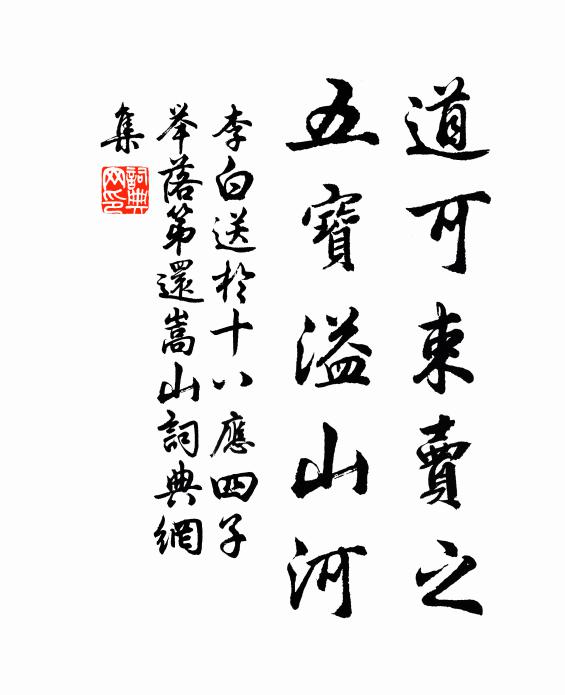 道可束賣之
五寶溢山河
李白送於十八應四子
举落第還嵩山詞典網
集
詞典网印